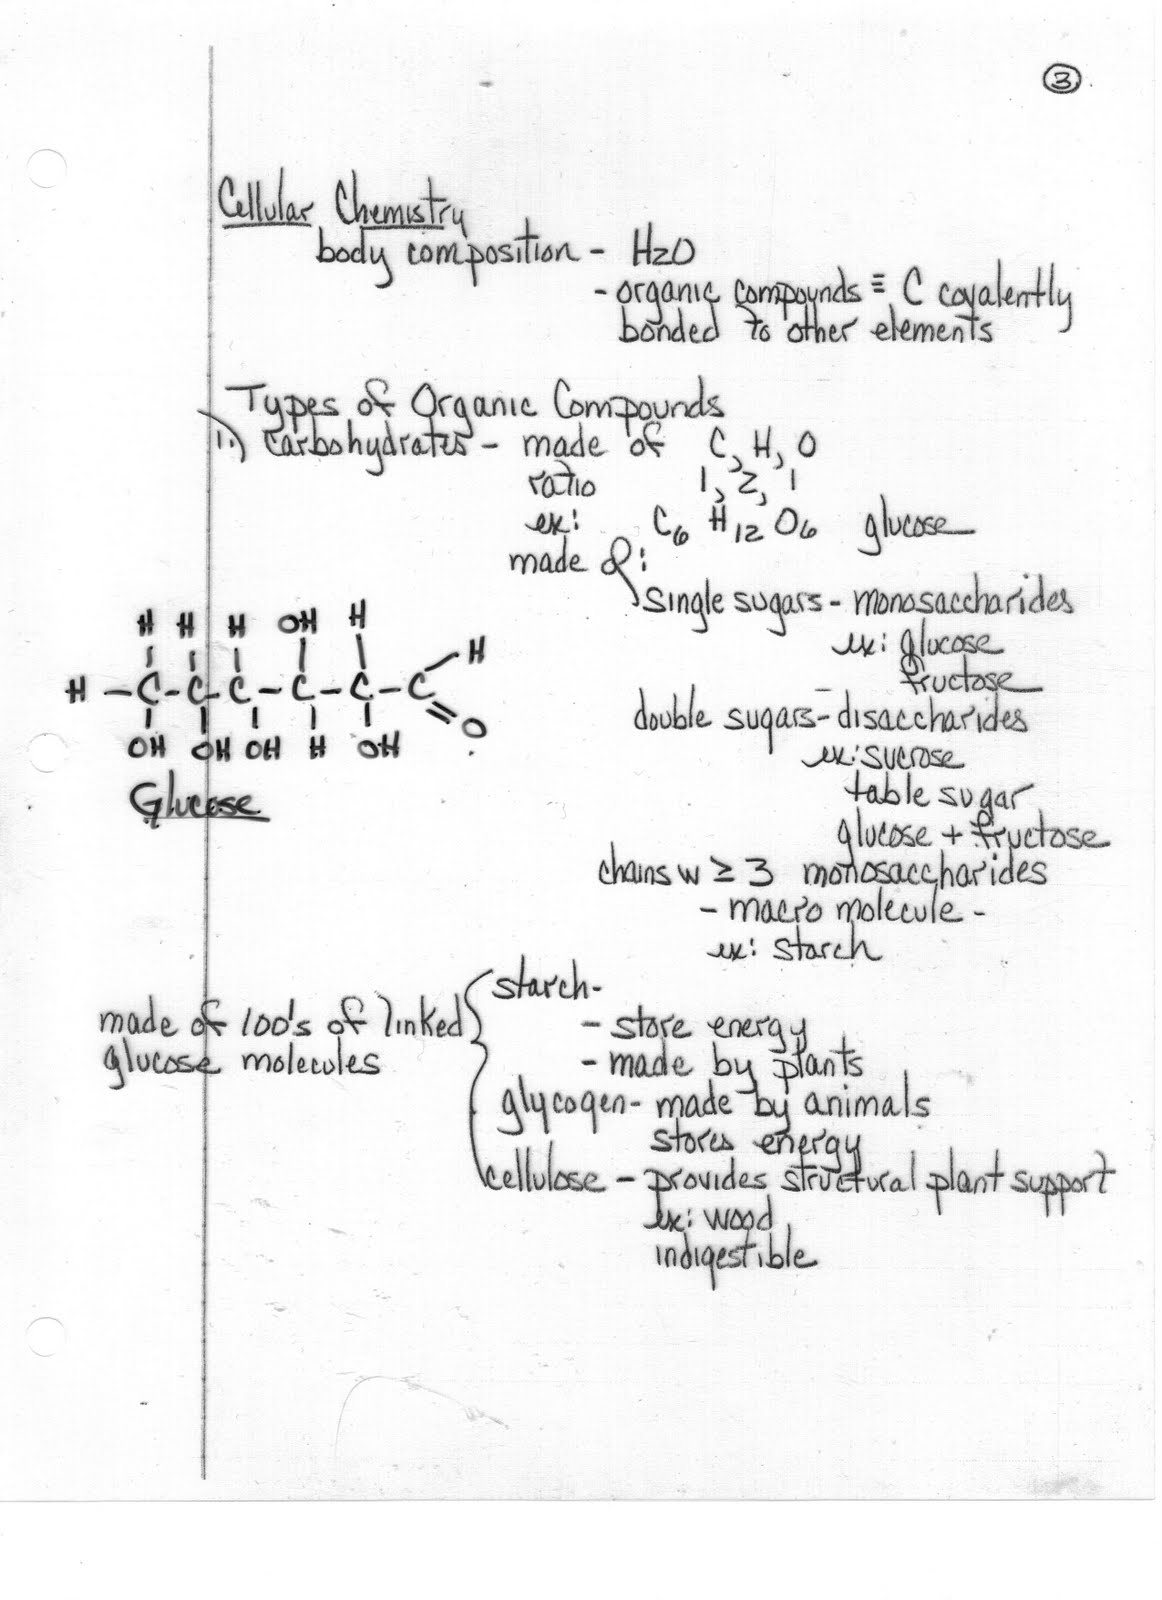 3
Cellular Chemistry
body composition - H2O
- organic compounds ≡ C covalently
bonded to other elements
Types of Organic Compounds
1.) carbohydrates - made of C, H, O
ratio 1, 2, 1
ex: C6 H12 O6 glucose
made of:
single sugars - monosaccharides
ex: glucose
fructose
double sugars - disaccharides
ex: sucrose
table sugar
glucose + fructose
chains w ≥ 3 monosaccharides
- macro molecule -
ex: starch
H H H OH H
H
H - C - C - C - C - C - C
O
OH OH OH H OH
Glucose
made of 100's of linked
glucose molecules
starch -
- store energy
- made by plants
glycogen - made by animals
stores energy
cellulose - provides structural plant support
ex: wood
indigestible